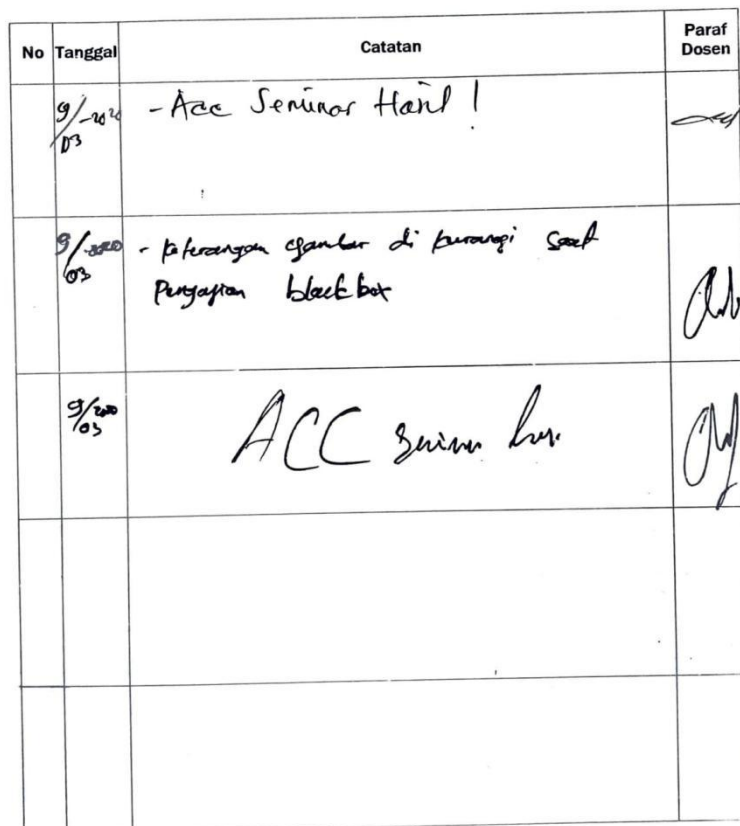 No Tanggal Catatan Paraf Dosen
9/03-2020 - Acc Seminar Hasil !
9/03-2020 - keterangan gambar di kurangi saat
Pengujian blackbox
9/03-2020 ACC